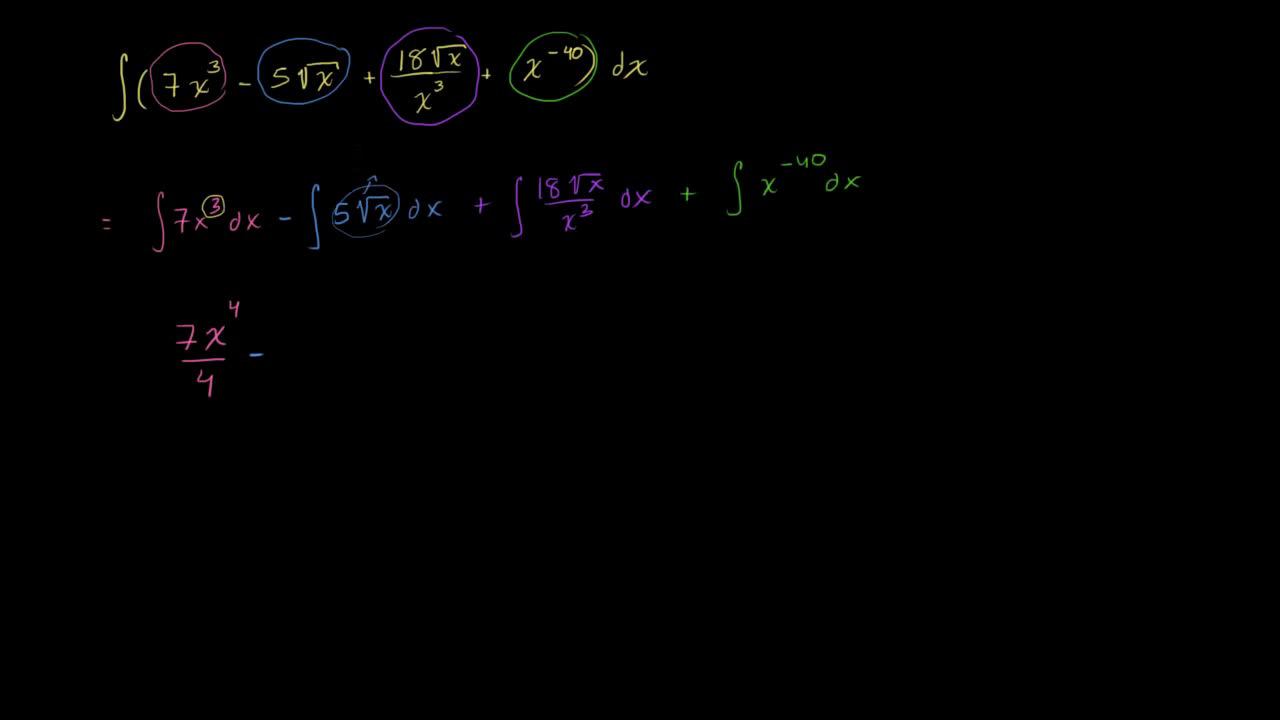 ∫(7x³ - 5√x + 18√x/x³ + x⁻⁴⁰) dx
= ∫7x³ dx - ∫5√x dx + ∫18√x/x³ dx + ∫x⁻⁴⁰ dx
7x⁴/4 -